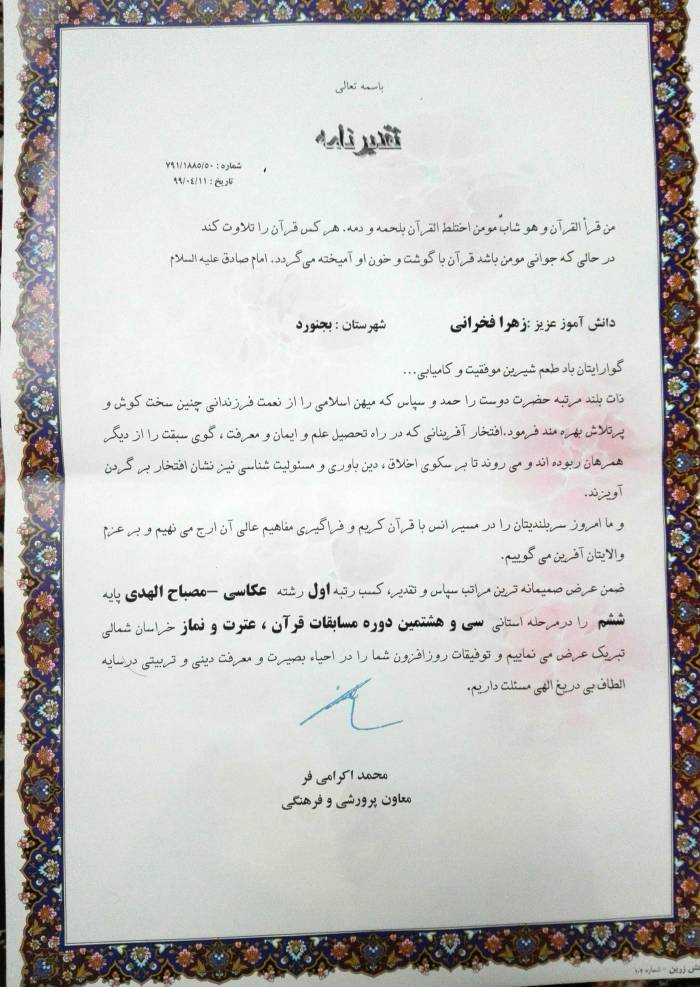 باسمه تعالی
تقدیرنامه
شماره : ۷۹۱/۱۸۸۵/۵۰
تاریخ : ۹۹/۰۴/۱۱
من قرأ القرآن و هو شابٌ مومن اختلط القرآن بلحمه و دمه. هر کس قرآن را تلاوت کند
در حالی که جوانی مومن باشد قرآن با گوشت و خون او آمیخته می‌گردد. امام صادق علیه السلام
دانش آموز عزیز :زهرا فخرانی شهرستان : بجنورد
گوارایتان باد طعم شیرین موفقیت و کامیابی...
ذات بلند مرتبه حضرت دوست را حمد و سپاس که میهن اسلامی را از نعمت فرزندانی چنین سخت کوش و
پرتلاش بهره مند فرمود.افتخار آفرینانی که در راه تحصیل علم و ایمان و معرفت ، گوی سبقت را از دیگر
همرهان ربوده اند و می روند تا بر سکوی اخلاق ، دین باوری و مسئولیت شناسی نیز نشان افتخار بر گردن
آویزند.
و ما امروز سربلندیتان را در مسیر انس با قرآن کریم و فراگیری مفاهیم عالی آن ارج می نهیم و بر عزم
والایتان آفرین می گوییم.
ضمن عرض صمیمانه ترین مراتب سپاس و تقدیر، کسب رتبه اول رشته عکاسی –مصباح الهدی پایه
ششم را درمرحله استانی سی و هشتمین دوره مسابقات قرآن ، عترت و نماز خراسان شمالی
تبریک عرض می نماییم و توفیقات روزافزون شما را در احیاء بصیرت و معرفت دینی و تربیتی درسایه
الطاف بی دریغ الهی مسئلت داریم.
محمد اکرامی فر
معاون پرورشی و فرهنگی
زرین - شماره ۱۰۲